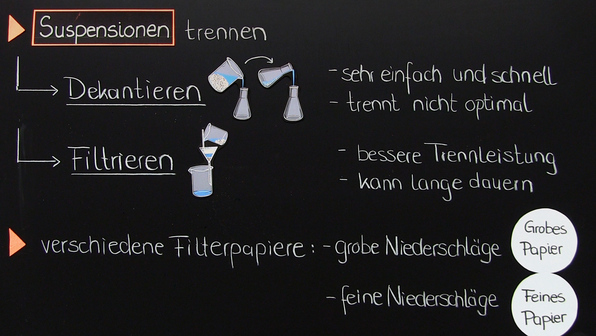 Suspensionen trennen
Dekantieren
- sehr einfach und schnell
- trennt nicht optimal
Filtrieren
- bessere Trennleistung
- kann lange dauern
verschiedene Filterpapiere: - grobe Niederschläge
Grobes
Papier
- feine Niederschläge
Feines
Papier